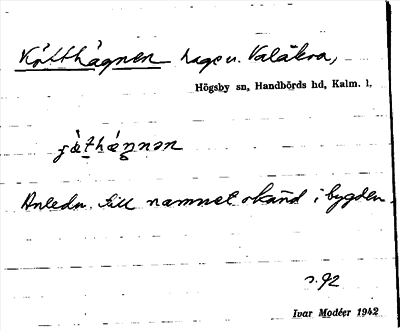 Kåtthågnen hage v. Valåkra,
Högsby sn, Handbörds hd, Kalm. l.
Anledn. till namnet okänd i bygden.
s. 92
Ivar Modéer 1942